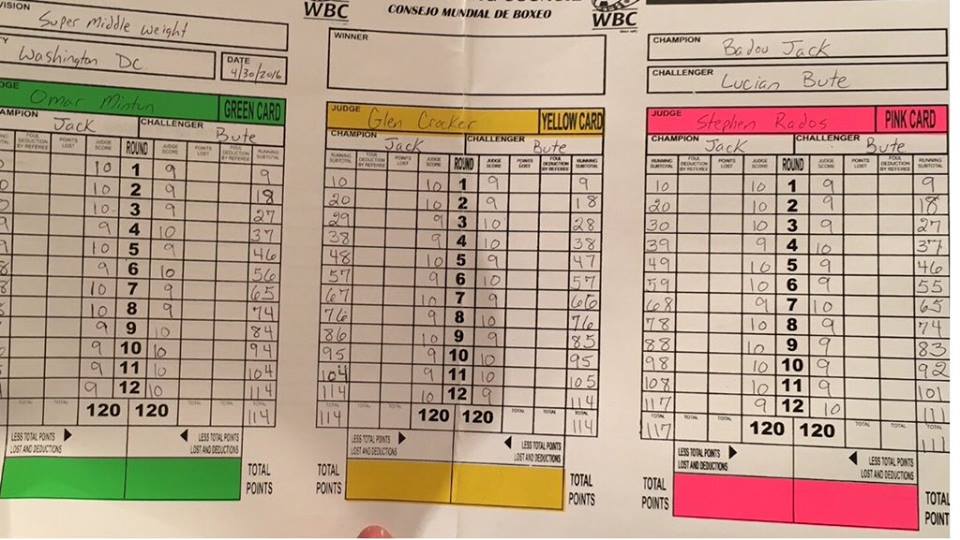 WBC
CONSEJO MUNDIAL DE BOXEO
WBC
Super Middle Weight
Washington DC
DATE
4/30/2016
WINNER
CHAMPION Badou Jack
CHALLENGER Lucian Bute
Omar Mintun GREEN CARD
Jack CHALLENGER Bute
POINTS LOST JUDGE SCORE ROUND JUDGE SCORE POINTS LOST FOUL DEDUCTION BY REFEREE RUNNING SUBTOTAL
10 1 9 9
10 2 9 18
10 3 9 27
9 4 10 37
10 5 9 46
9 6 10 56
10 7 9 65
10 8 9 74
9 9 10 84
9 10 10 94
9 11 10 104
9 12 10 114
120 120 114
LESS TOTAL POINTS LOST AND DEDUCTIONS
LESS TOTAL POINTS LOST AND DEDUCTIONS
TOTAL POINTS
JUDGE Glen Crocker YELLOW CARD
CHAMPION Jack CHALLENGER Bute
RUNNING SUBTOTAL FOUL DEDUCTION BY REFEREE POINTS LOST JUDGE SCORE ROUND JUDGE SCORE POINTS LOST FOUL DEDUCTION BY REFEREE RUNNING SUBTOTAL
10 10 1 9 9
20 10 2 9 18
29 9 3 10 28
38 9 4 10 38
48 10 5 9 47
57 9 6 10 57
67 10 7 9 66
76 9 8 10 76
86 10 9 9 85
95 9 10 10 95
104 9 11 10 105
114 10 12 9 114
114 120 120 114
LESS TOTAL POINTS LOST AND DEDUCTIONS
LESS TOTAL POINTS LOST AND DEDUCTIONS
TOTAL POINTS
TOTAL POINTS
JUDGE Stephen Rados PINK CARD
CHAMPION Jack CHALLENGER Bute
RUNNING SUBTOTAL FOUL DEDUCTION BY REFEREE POINTS LOST JUDGE SCORE ROUND JUDGE SCORE POINTS LOST FOUL DEDUCTION BY REFEREE RUNNING SUBTOTAL
10 10 1 9 9
20 10 2 9 18
30 10 3 9 27
39 9 4 10 37
49 10 5 9 46
59 10 6 9 55
68 9 7 10 65
78 10 8 9 74
88 10 9 9 83
98 10 10 9 92
108 10 11 9 101
117 9 12 10 111
117 120 120 111
LESS TOTAL POINTS LOST AND DEDUCTIONS
LESS TOTAL POINTS LOST AND DEDUCTIONS
TOTAL POINTS
TOTAL POINT